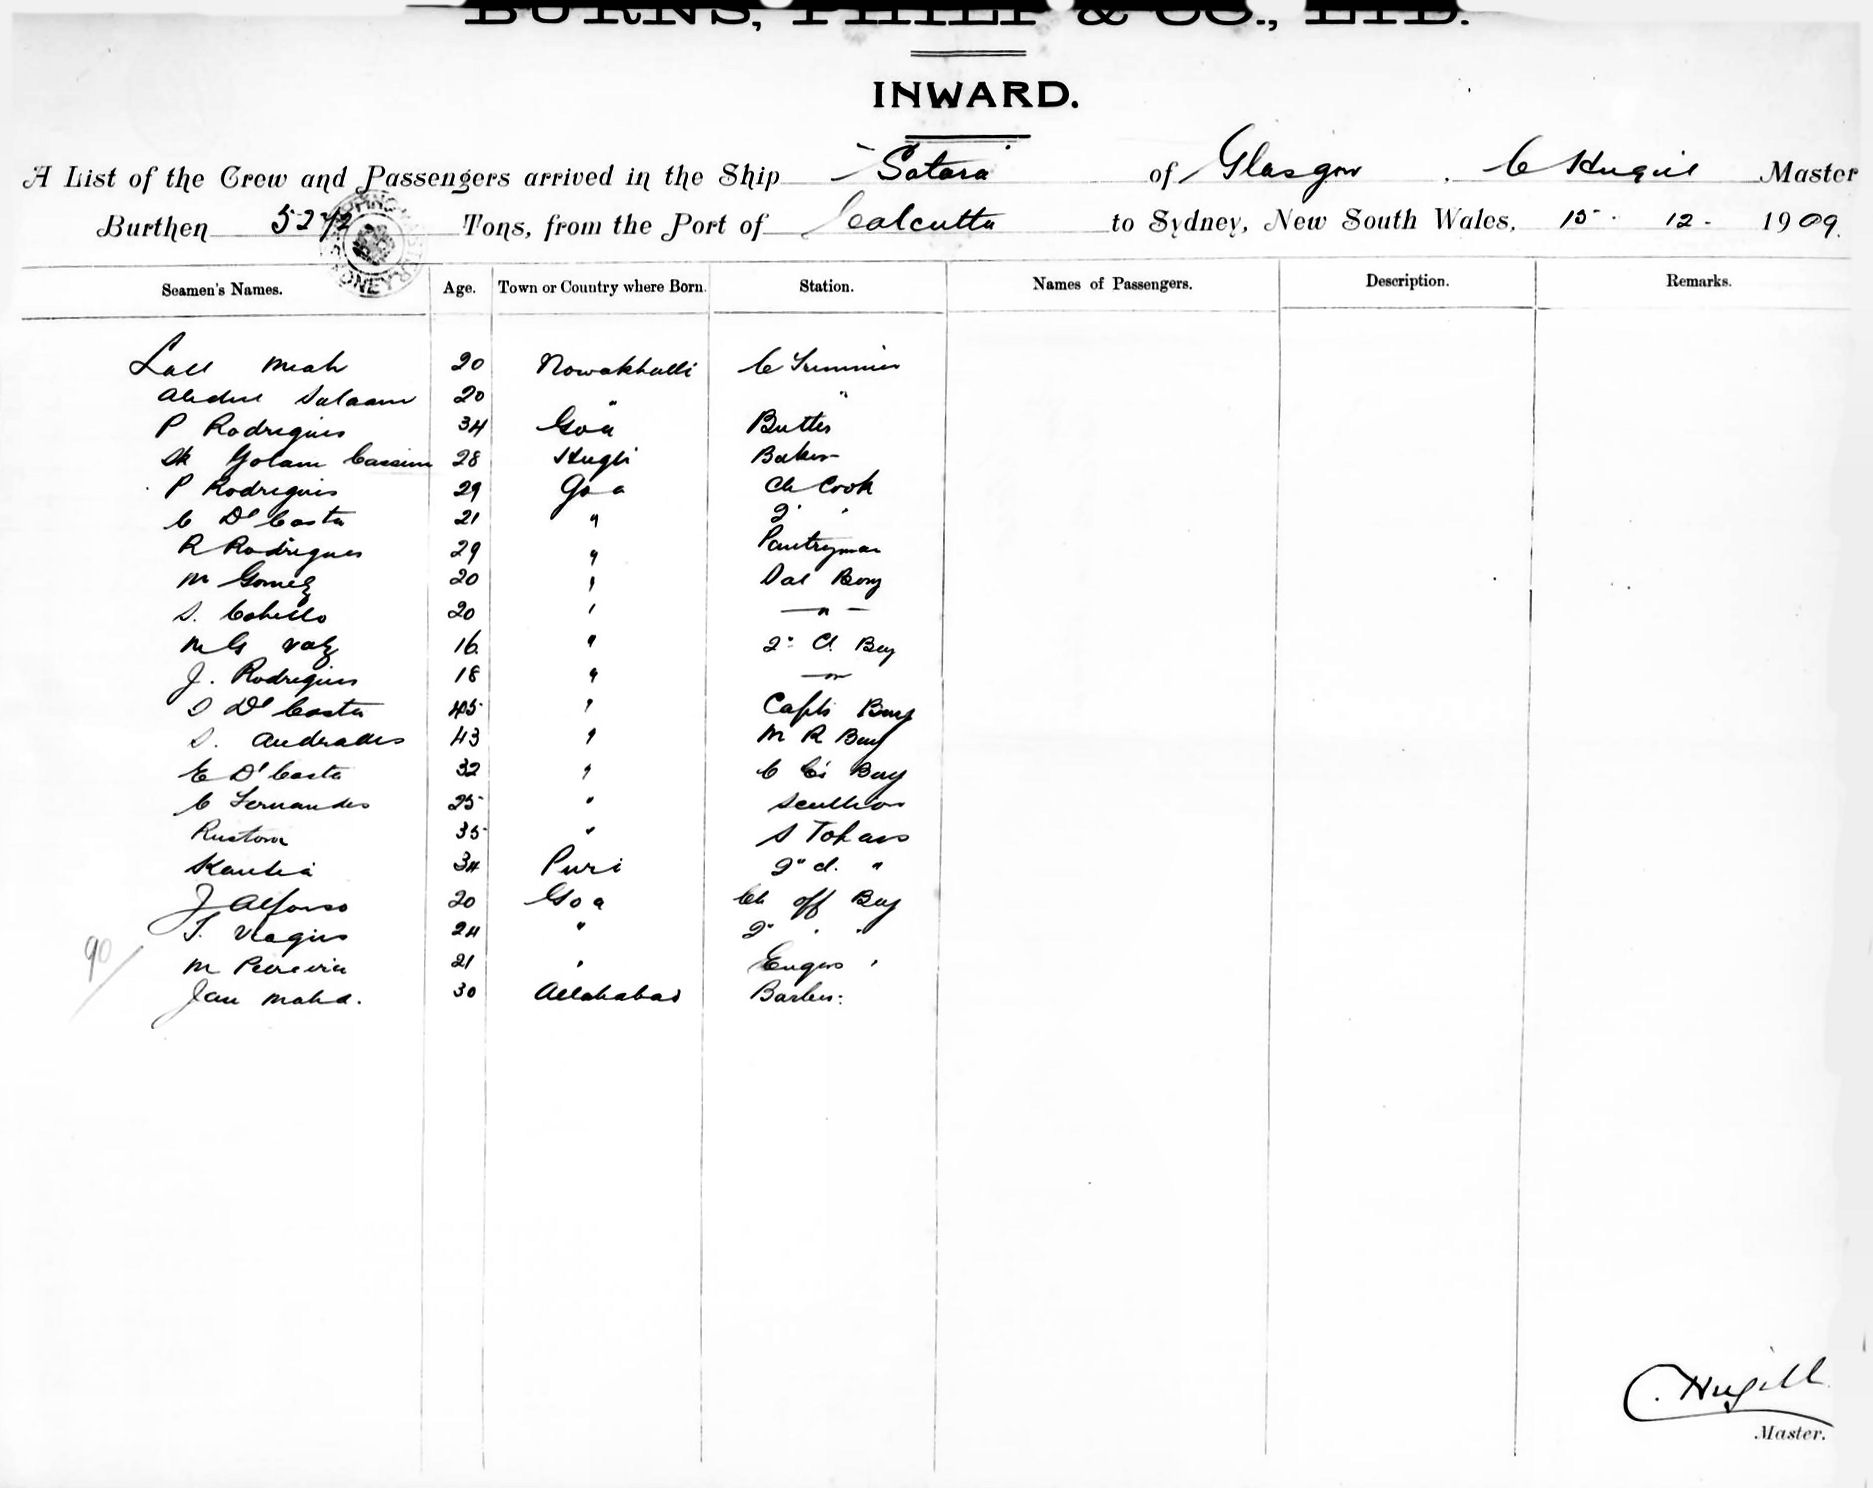 BURNS, PHILP & CO., LTD.
INWARD.
A List of the Crew and Passengers arrived in the Ship "Satara" of Glasgow, C Hugill Master
Burthen 5272 Tons, from the Port of Calcutta to Sydney, New South Wales, 15. 12. 1909.
Seamen's Names. Age. Town or Country where Born. Station. Names of Passengers. Description. Remarks.
Lall Meah 20 Nowakhalli C Trimmer
Abdul Salaam 20 " "
P Rodrigues 34 Goa Butler
Sk Golam Cassim 28 Hugli Baker
P Rodrigues 29 Goa Ch Cook
C D'Costa 21 " 2 "
R Rodrigues 29 " Pantryman
M Gomez 20 " Sal Boy
S. Cobello 20 " — " —
M G Vaz 16 " 2: Cl. Boy
J. Rodrigues 18 " — " —
S D'Costa 45 " Capts Boy
S. Andrades 43 " M R Boy
E D'Costa 32 " C E's Boy
C Fernandes 25 " Scullion
Rustom 35 " S Topass
Kautia 34 Puri 2" cl. "
J Alfonso 20 Goa Ch off Boy
T. Viegas 24 " 2" " "
M Pereira 21 " Engrs "
Jan Mahd. 30 Allahabad Barber:
90/
C. Hugill
Master.